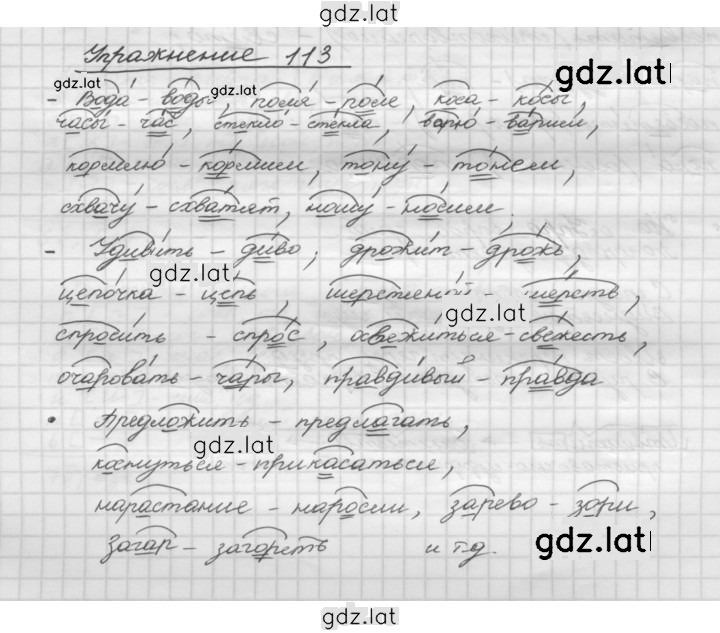 gdz.lat
Упражнение 113
gdz.lat
gdz.lat
- Вода - воды, поля - поле, коса - косы,
часы - час, стекло - стёкла, варю - варишь,
кормлю - кормишь, тону - тонем,
схвачу - схватят, ношу - носим.
- Удивить - диво; дрожит - дрожь,
gdz.lat
цепочка - цепь, шерстяной - шерсть,
gdz.lat
спросить - спрос, освежиться - свежесть,
очаровать - чары, правдивый - правда
• Предложить - предлагать,
gdz.lat
коснуться - прикасаться,
нарастание - наросли, зарево - зори,
загар - загореть и т.д.
gdz.lat
gdz.lat